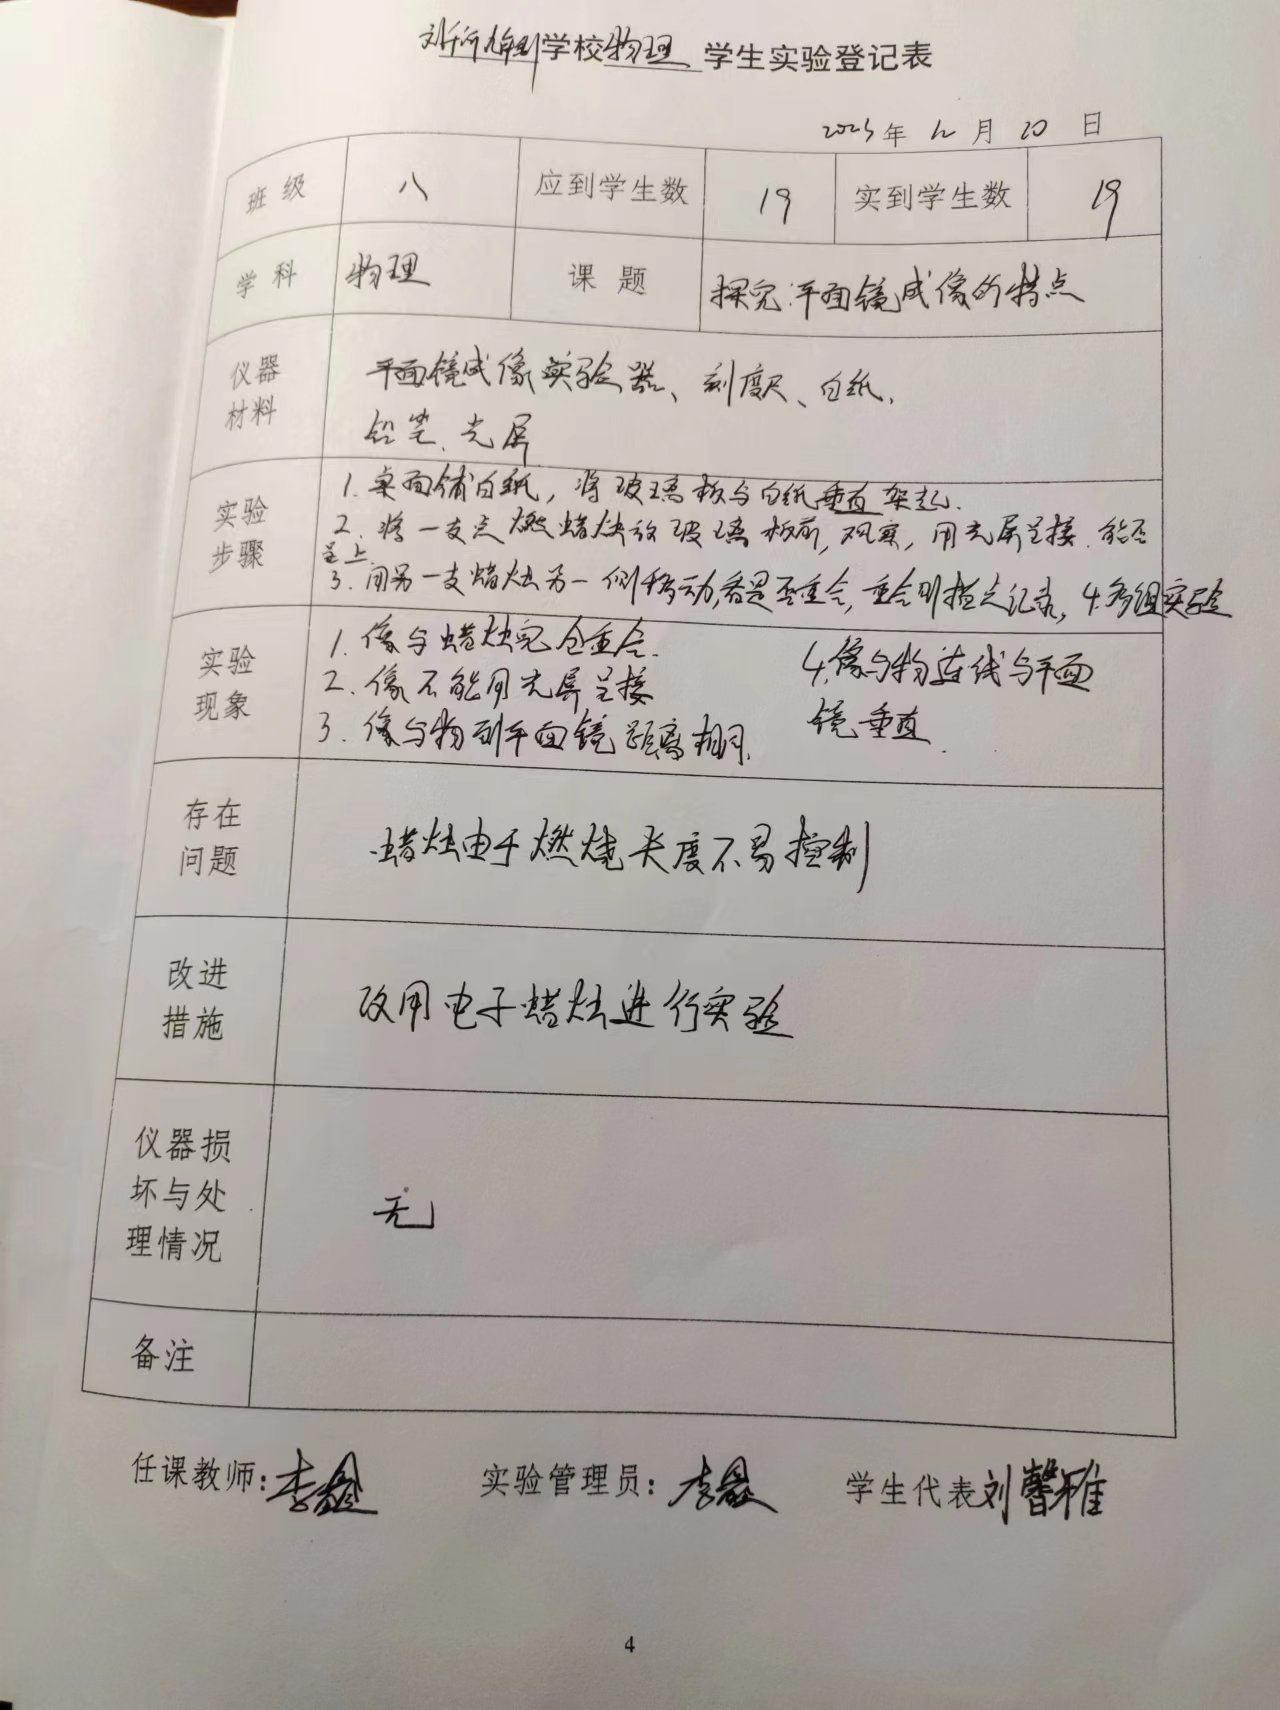 学校物理 学生实验登记表
2023年12月20日
班级 八 应到学生数 19 实到学生数 19
学科 物理 课题 探究:平面镜成像的特点
仪器材料 平面镜成像实验器、刻度尺、白纸、
铅笔、光屏
实验步骤 1. 桌面铺白纸,将玻璃板与白纸垂直架起.
2. 将一支点燃蜡烛放玻璃板前,观察,用光屏呈接.能否
呈上.
3. 用另一支蜡烛另一侧移动,看是否重合,重合则描点记录,4.多组实验
实验现象 1. 像与蜡烛完全重合.
2. 像不能用光屏呈接
3. 像与物到平面镜距离相同.
4.像与物连线与平面
镜垂直.
存在问题 蜡烛由于燃烧长度不易控制
改进措施 改用电子蜡烛进行实验
仪器损坏与处理情况 无
备注
任课教师:李鑫 实验管理员:李 学生代表刘馨雅
4